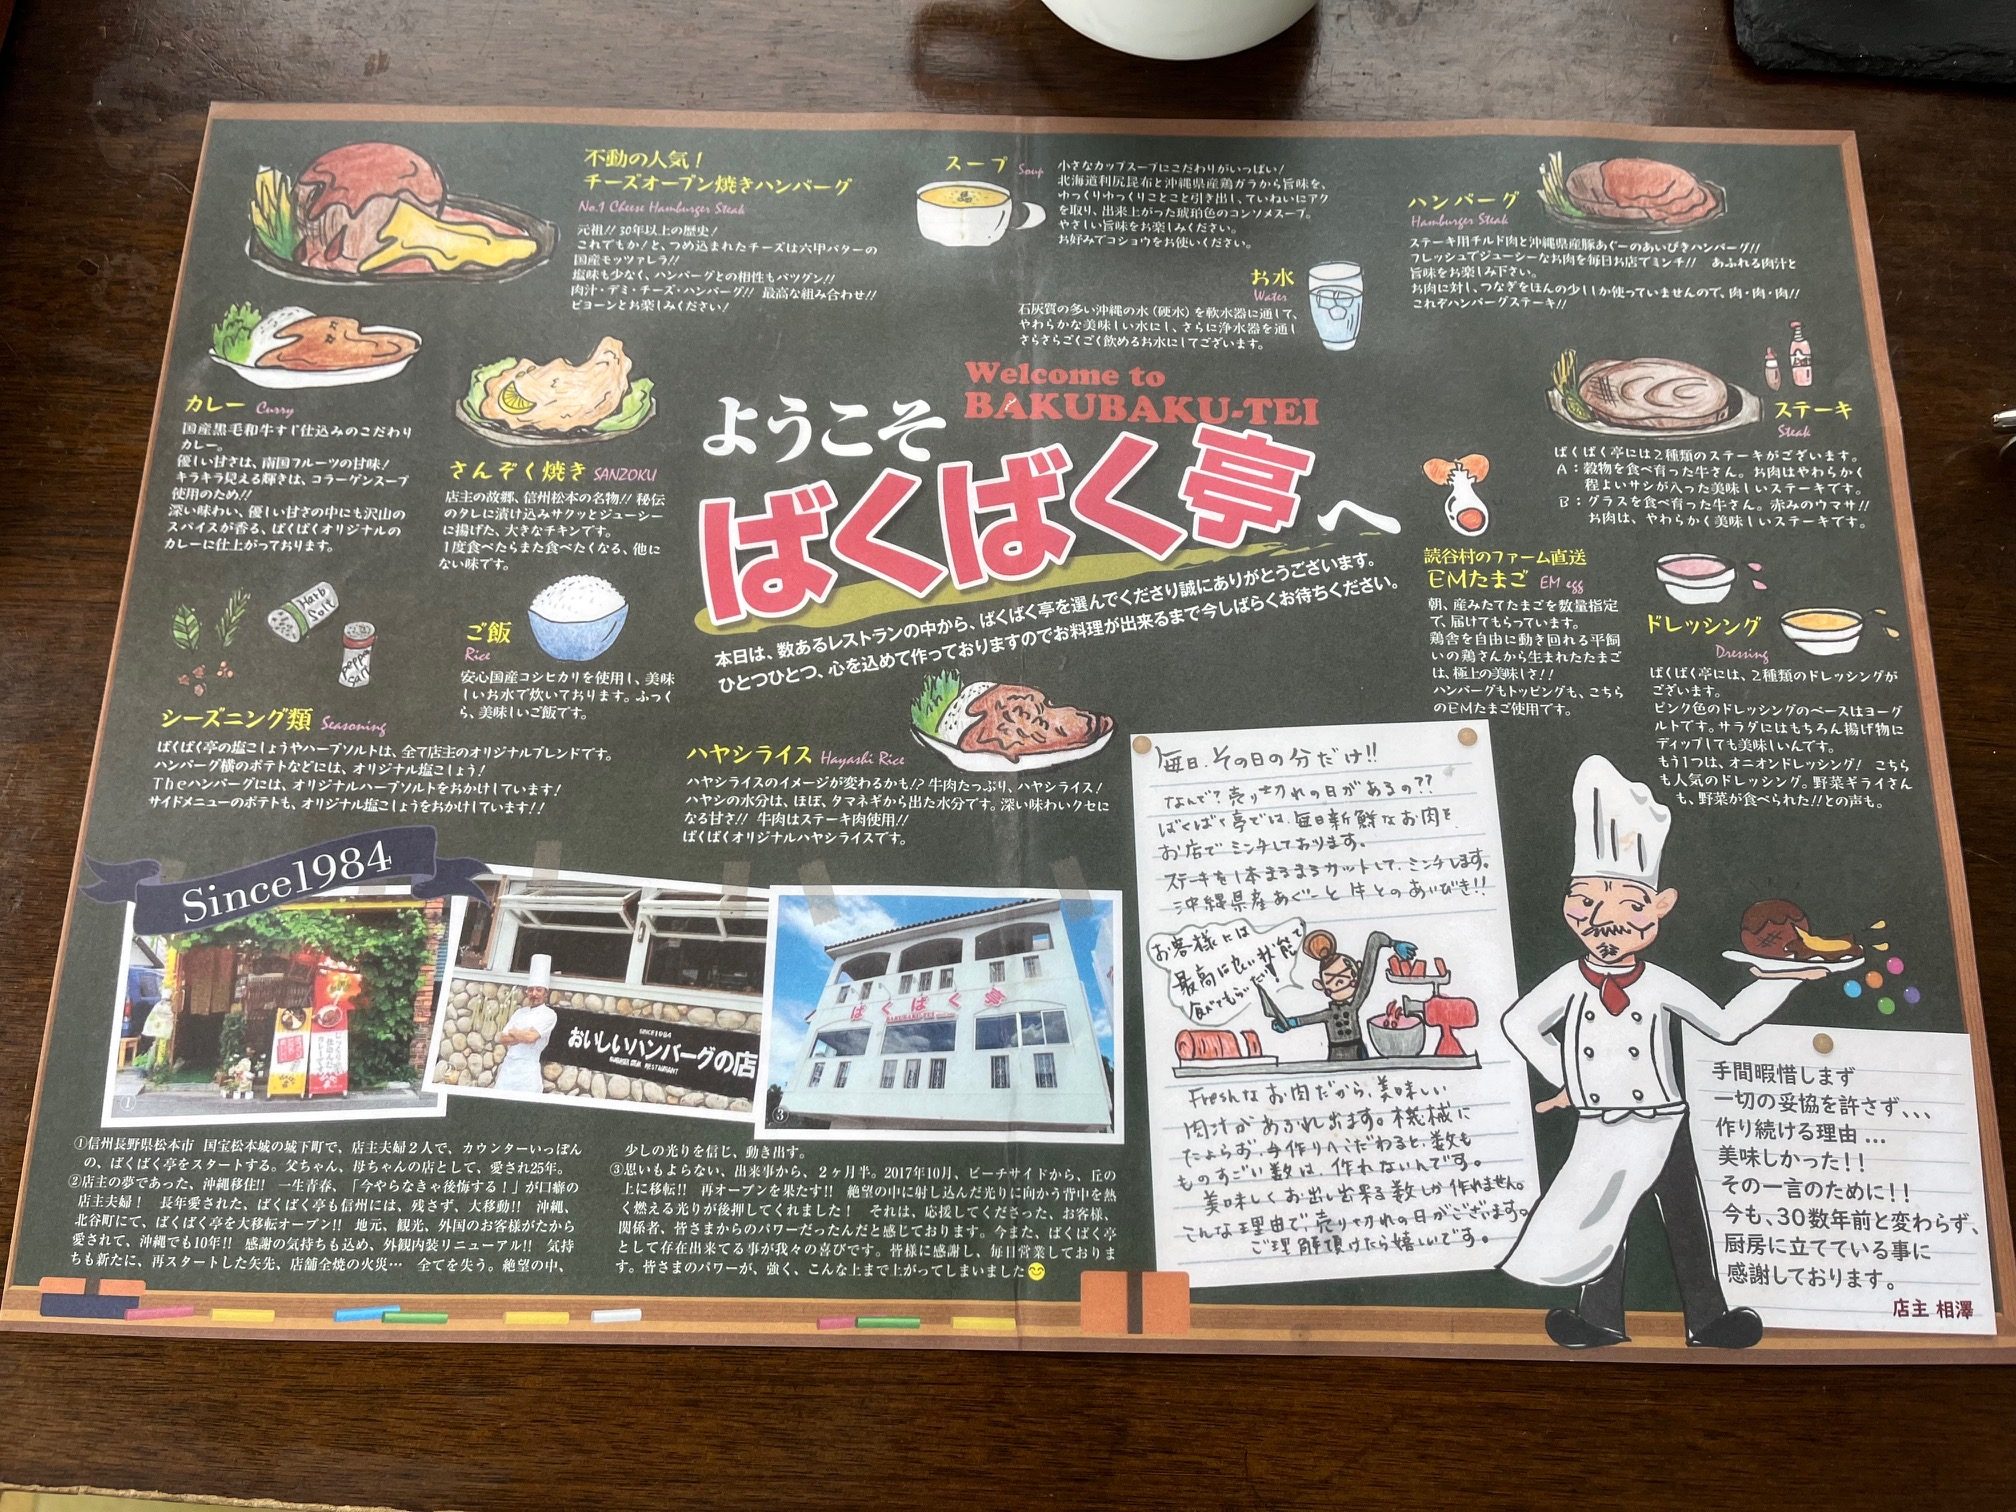 不動の人気！
チーズオーブン焼きハンバーグ
No.1 Cheese Hamburger Steak
元祖!! 30年以上の歴史！
これでもか！と、つめ込まれたチーズは六甲バターの
国産モッツァレラ!!
塩味も少なく、ハンバーグとの相性もバツグン!!
肉汁・デミ・チーズ・ハンバーグ!! 最高な組み合わせ!!
ビヨーンとお楽しみください！
スープ Soup
小さなカップスープにこだわりがいっぱい！
北海道利尻昆布と沖縄県産鶏ガラから旨味を、
ゆっくりゆっくりことこと引き出し、ていねいにアク
を取り、出来上がった琥珀色のコンソメスープ。
やさしい旨味をお楽しみください。
お好みでコショウをお使いください。
お水
Water
石灰質の多い沖縄の水（硬水）を軟水器に通して、
やわらかな美味しい水にし、さらに浄水器を通し
さらさらごくごく飲めるお水にしてございます。
ハンバーグ
Hamburger Steak
ステーキ用チルド肉と沖縄県産豚あぐーのあいびきハンバーグ!!
フレッシュでジューシーなお肉を毎日お店でミンチ!! あふれる肉汁と
旨味をお楽しみ下さい。
お肉に対し、つなぎをほんの少ししか使っていませんので、肉・肉・肉!!
これぞハンバーグステーキ!!
カレー Curry
国産黒毛和牛すじ仕込みのこだわり
カレー。
優しい甘さは、南国フルーツの甘味！
キラキラ見える輝きは、コラーゲンスープ
使用のため!!
深い味わい、優しい甘さの中にも沢山の
スパイスが香る、ばくばくオリジナルの
カレーに仕上がっております。
さんぞく焼き SANZOKU
店主の故郷、信州松本の名物!! 秘伝
のタレに漬け込みサクッとジューシー
に揚げた、大きなチキンです。
1度食べたらまた食べたくなる、他に
ない味です。
Welcome to
BAKUBAKU-TEI
ようこそ
ばくばく亭へ
本日は、数あるレストランの中から、ばくばく亭を選んでくださり誠にありがとうございます。
ひとつひとつ、心を込めて作っておりますのでお料理が出来るまで今しばらくお待ちください。
ステーキ
Steak
ばくばく亭には2種類のステーキがございます。
A：穀物を食べ育った牛さん。お肉はやわらかく
程よいサシが入った美味しいステーキです。
B：グラスを食べ育った牛さん。赤みのウマサ!!
お肉は、やわらかく美味しいステーキです。
読谷村のファーム直送
EMたまご EM egg
朝、産みたてたまごを数量指定
で、届けてもらっています。
鶏舎を自由に動き回れる平飼
いの鶏さんから生まれたたまご
は、極上の美味しさ!!
ハンバーグもトッピングも、こちら
のEMたまご使用です。
ドレッシング
Dressing
ばくばく亭には、2種類のドレッシングが
ございます。
ピンク色のドレッシングのベースはヨーグ
ルトです。サラダにはもちろん揚げ物に
ディップしても美味しいんです。
もう1つは、オニオンドレッシング！ こちら
も人気のドレッシング。野菜ギライさん
も、野菜が食べられた!!との声も。
Harb
Salt
シーズニング類 Seasoning
ばくばく亭の塩こしょうやハーブソルトは、全て店主のオリジナルブレンドです。
ハンバーグ横のポテトなどには、オリジナル塩こしょう！
Theハンバーグには、オリジナルハーブソルトをおかけしています！
サイドメニューのポテトも、オリジナル塩こしょうをおかけしています！！
ご飯
Rice
安心国産コシヒカリを使用し、美味
しいお水で炊いております。ふっく
ら、美味しいご飯です。
ハヤシライス Hayashi Rice
ハヤシライスのイメージが変わるかも!? 牛肉たっぷり、ハヤシライス！
ハヤシの水分は、ほぼ、タマネギから出た水分です。深い味わいクセに
なる甘さ!! 牛肉はステーキ肉使用!!
ばくばくオリジナルハヤシライスです。
毎日、その日の分だけ!!
なんで？売り切れの日があるの??
ばくばく亭では、毎日新鮮なお肉を
お店でミンチしております。
ステーキを1本まるまるカットして、ミンチします。
沖縄県産あぐーと牛とのあいびき!!
お客様には
最高に良い状態で
食べてもらいたい!!
Freshなお肉だから、美味しい
肉汁があふれ出ます。機械に
たよらず、手作りへこだわると、数も
ものすごい数は、作れないんです。
美味しくお出し出来る数しか作れません。
こんな理由で、売り切れの日がございます。
ご理解頂けたら嬉しいです。
Since1984
①
②
SINCE1984
おいしいハンバーグの店
HAMBURGER STEAK RESTAURANT
③
ばくばく亭
BAKUBAKU-TEI
①信州長野県松本市 国宝松本城の城下町で、店主夫婦2人で、カウンターいっぽん
の、ばくばく亭をスタートする。父ちゃん、母ちゃんの店として、愛され25年。
②店主の夢であった、沖縄移住!! 一生青春、「今やらなきゃ後悔する！」が口癖の
店主夫婦！ 長年愛された、ばくばく亭も信州には、残さず、大移動!! 沖縄、
北谷町にて、ばくばく亭を大移転オープン!! 地元、観光、外国のお客様がたから
愛されて、沖縄でも10年!! 感謝の気持ちも込め、外観内装リニューアル!! 気持
ちも新たに、再スタートした矢先、店舗全焼の火災… 全てを失う。絶望の中、
少しの光りを信じ、動き出す。
③思いもよらない、出来事から、2ヶ月半。2017年10月、ビーチサイドから、丘の
上に移転!! 再オープンを果たす!! 絶望の中に射し込んだ光りに向かう背中を熱
く燃える光りが後押してくれました！ それは、応援してくださった、お客様、
関係者、皆さまからのパワーだったんだと感じております。今また、ばくばく亭
として存在出来てる事が我々の喜びです。皆様に感謝し、毎日営業しておりま
す。皆さまのパワーが、強く、こんな上まで上がってしまいました😊
手間暇惜しまず
一切の妥協を許さず、、、
作り続ける理由…
美味しかった！！
その一言のために！！
今も、30数年前と変わらず、
厨房に立てている事に
感謝しております。
店主 相澤